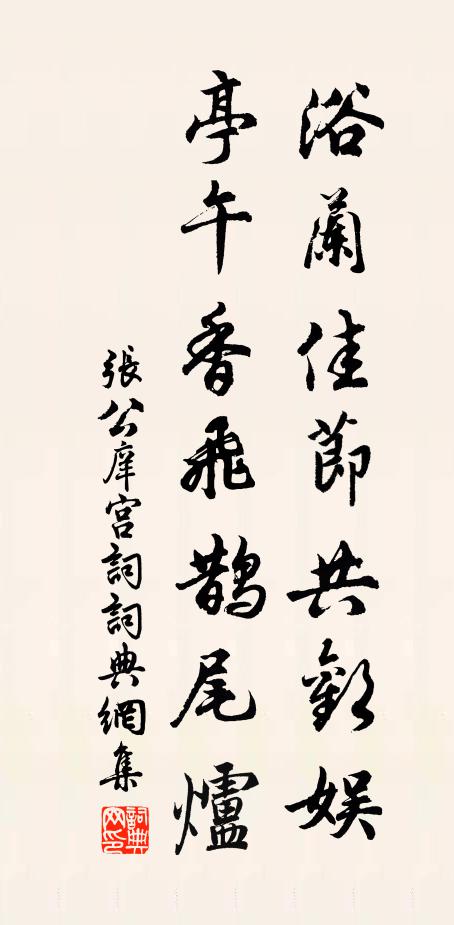 浴蘭佳節共歡娛
亭午香飛鵲尾爐
張公庠宮詞詞典網集
詞典网印